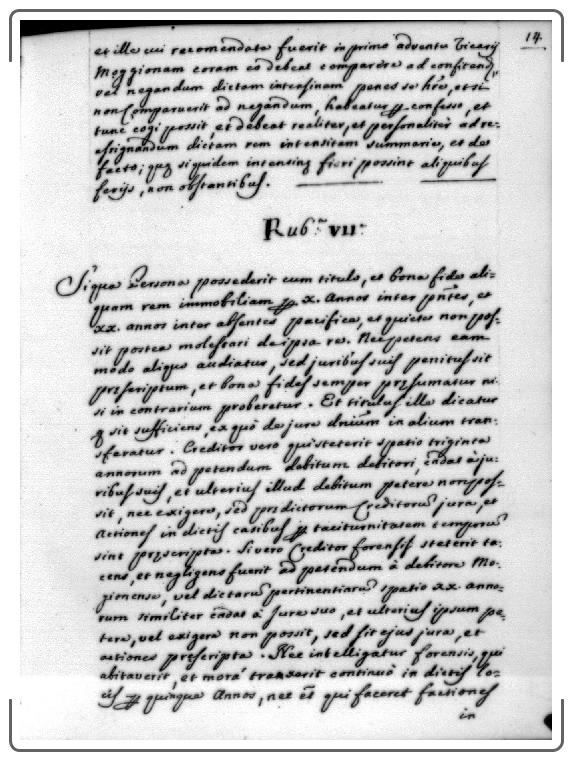 14.
et ille cui recomendata fuerit in primo adventu Vicarij
Moggionam coram eo debeat comparere ad confitend,
vel negandum dictam intensinam penes se hre, et si
non comparuerit ad negandum, habeatur p confesso, et
tunc cogi possit et debeat realiter, et personaliter ad re-
assignandum dictam rem intensitam summarie, et de
facto; quę siquidem intensinę fieri possint aliquibus
ferijs, non obstantibus.
Rub.ca VII.a
Siqua Persona possederit cum titulo, et bona fide ali-
quam rem immobiliam p x. Annos inter pntes, et
xx. annos inter absentes pacifice, et quiete non pos-
sit postea molestari de ipsa re. Nec petens eam
modo aliquo audiatur, sed juribus suis penitus sit
prescriptum, et bona fides semper pręsumatur ni-
si in contrarium proberetur. Et titulus ille dicatur
q sit sufficiens, ex quò de jure dnium in alium tran-
sferatur. Creditor vero qui steterit spatio triginta
annorum ad petendum debitum debitori, cadat à ju-
ribus suis, et ulterius illud debitum petere non pos-
sit, nec exigere, sed prędictorum Creditorũ jura, et
actiones in dictis casibus p taciturnitatem temporũ
sint pręscripta. Si vero Creditor forensis steterit ta-
cens, et negligens fuerit ad petendum à debitore Mo-
gionense, vel dictarũ pertinentiarũ spatio xx. anno-
rum similiter cadat à Jure suo, et ulterius ipsum pe-
tere, vel exigere non possit, sed sit ejus jura, et
actiones prescripta. Nec intelligatur forensis, qui
abitaverit, et morã traxerit continuò in dictis lo-
cis p quinque Annos, nec et qui faceret factiones
in